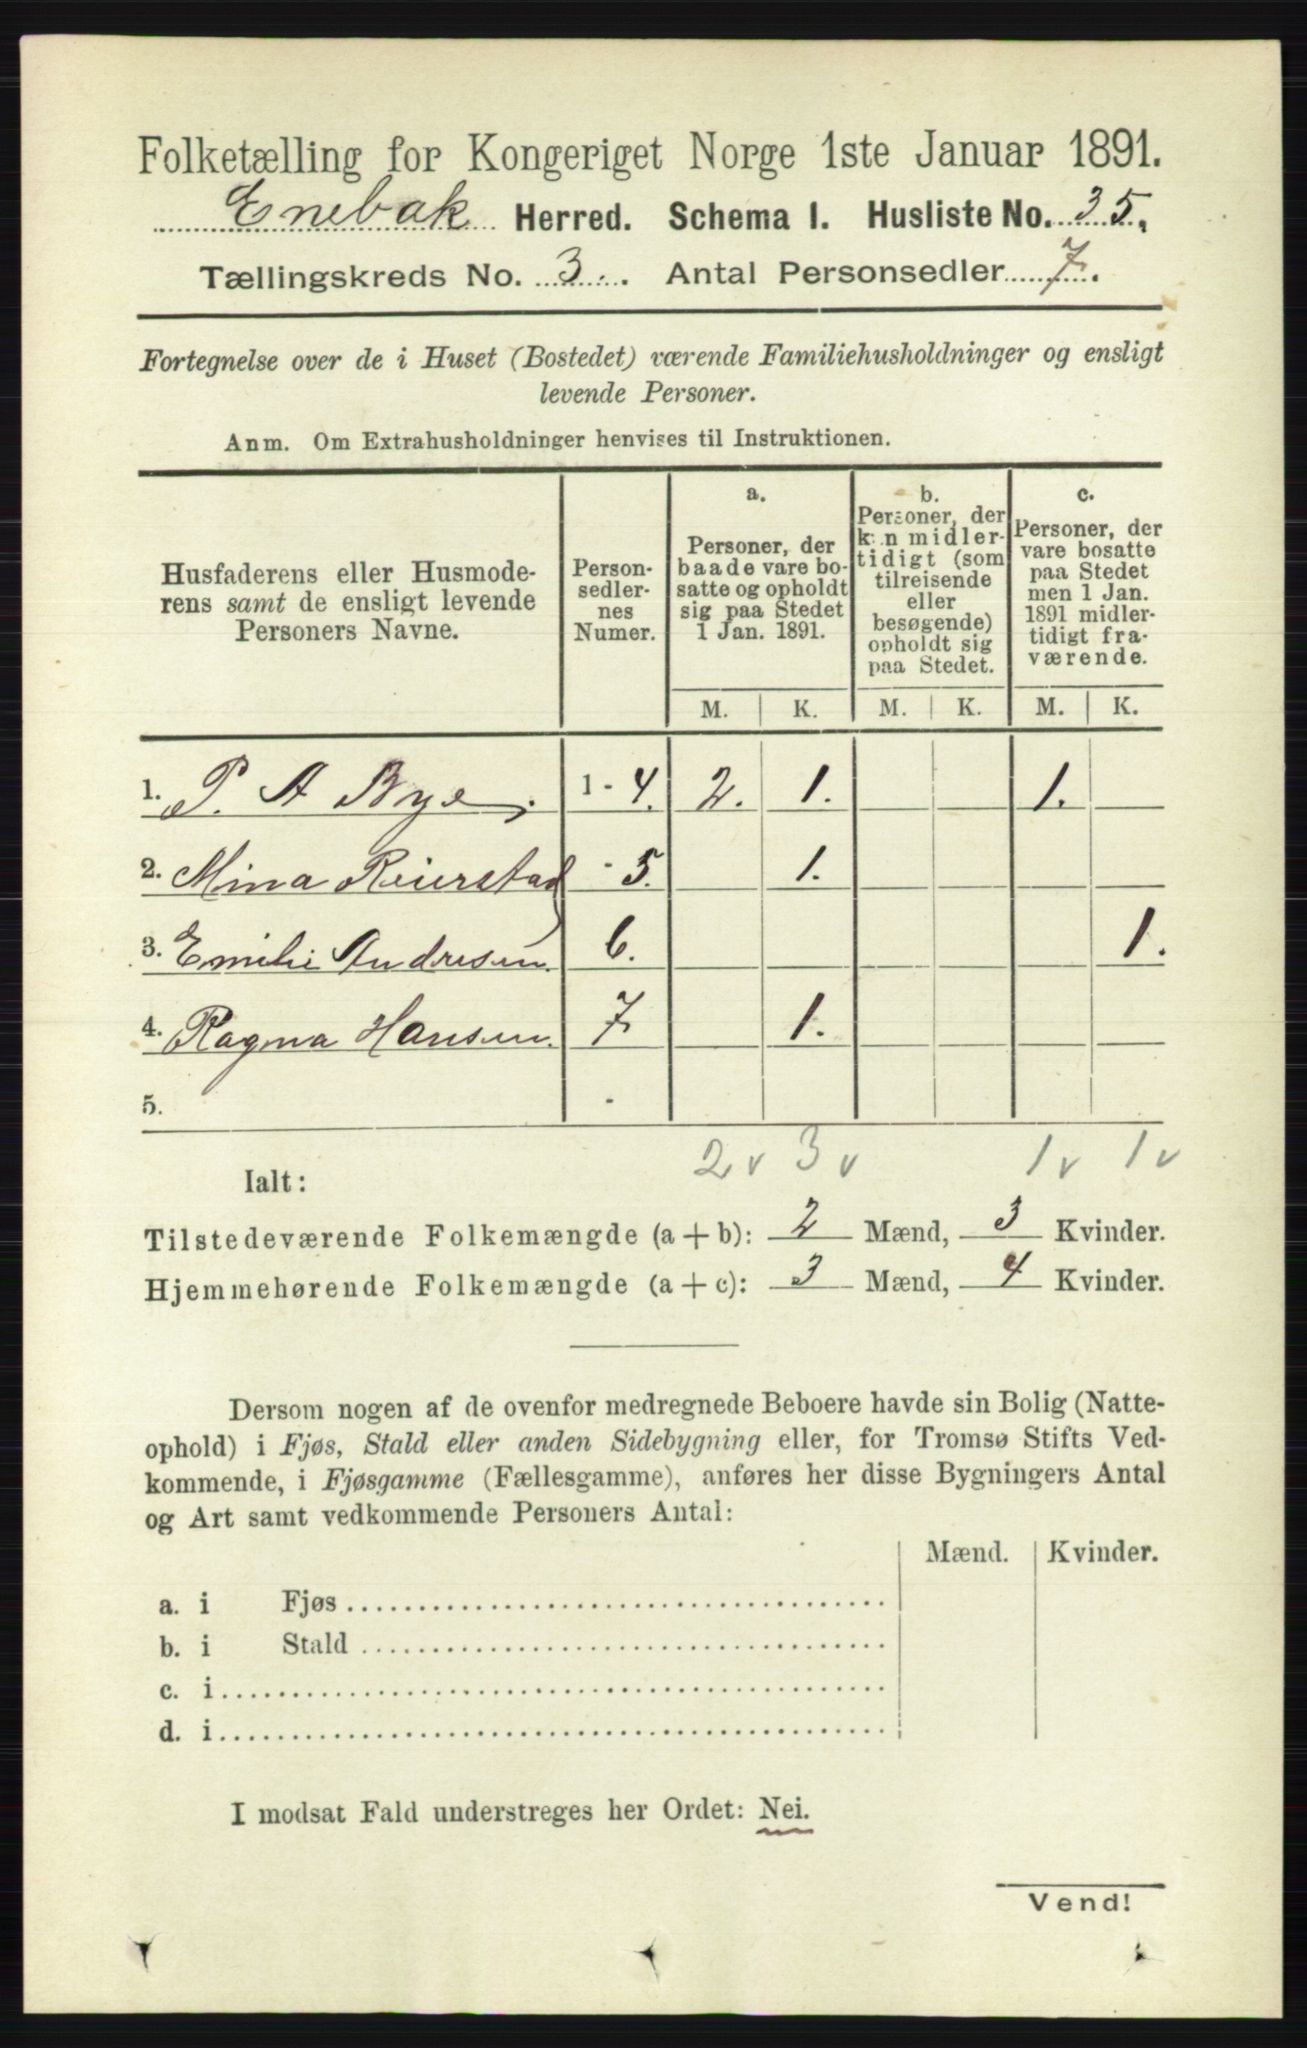 Folketælling for Kongeriget Norge 1ste Januar 1891.
Enebak Herred. Schema I. Husliste No. 35.
Tællingskreds No. 3. Antal Personsedler 7.
Fortegnelse over de i Huset (Bostedet) værende Familiehusholdninger og ensligt
levende Personer.
Anm. Om Extrahusholdninger henvises til Instruktionen.
Husfaderens eller Husmode-
rens samt de ensligt levende
Personers Navne.
Person-
sedler-
nes
Numer.
a.
Personer, der
baade vare bo-
satte og opholdt
sig paa Stedet
1 Jan. 1891.
b.
Personer, der
kun midler-
tidigt (som
tilreisende
eller
besøgende)
opholdt sig
paa Stedet.
c.
Personer, der
vare bosatte
paa Stedet
men 1 Jan.
1891 midler-
tidigt fra-
værende.
M. K. M. K. M. K.
1. P. A Bye. 1 - 4. 2. 1. 1.
2. Mina Reierstad - 5. 1.
3. Emilie Andresen. 6. 1.
4. Ragna Hansen. 7 1.
5. -
2 v 3 v 1 v 1 v
Ialt:
Tilstedeværende Folkemængde (a + b): 2 Mænd, 3 Kvinder.
Hjemmehørende Folkemængde (a + c): 3 Mænd, 4 Kvinder.
Dersom nogen af de ovenfor medregnede Beboere havde sin Bolig (Natte-
ophold) i Fjøs, Stald eller anden Sidebygning eller, for Tromsø Stifts Ved-
kommende, i Fjøsgamme (Fællesgamme), anføres her disse Bygningers Antal
og Art samt vedkommende Personers Antal:
Mænd. Kvinder.
a. i Fjøs
b. i Stald
c. i
d. i
I modsat Fald understreges her Ordet: Nei.
Vend!